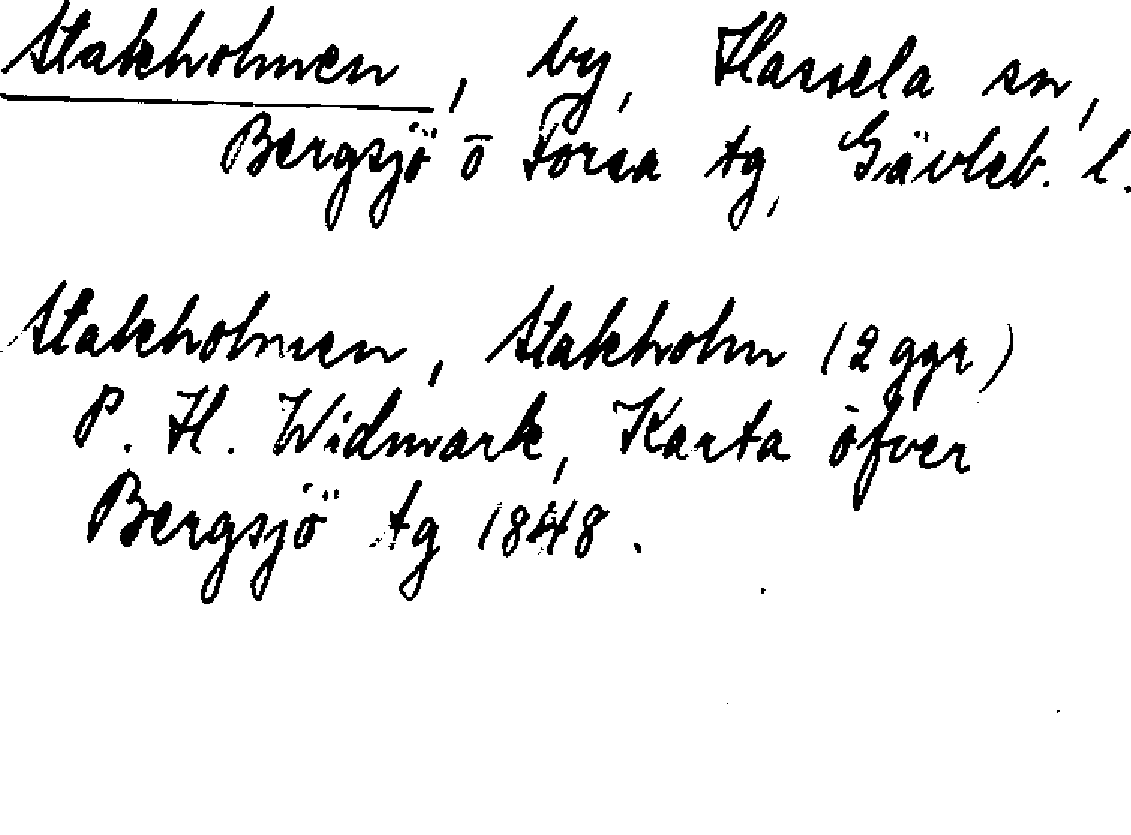 Stakholmen, by, Hassela sn,
Bergsjö o Forsa tg, Gävleb. l.
Stakholmen, Stakholm (2 ggr)
P. H. Widmark, Karta öfver
Bergsjö tg 1848.